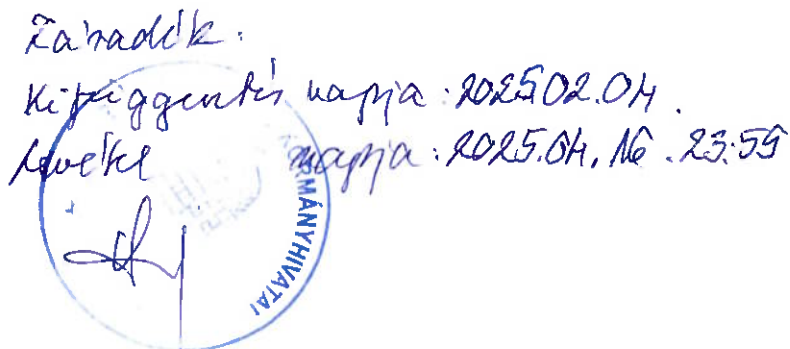 Záradék:
Kifüggesztés napja: 2025.02.04.
levétel napja: 2025.04.16. 23:59
KORMÁNYHIVATAL